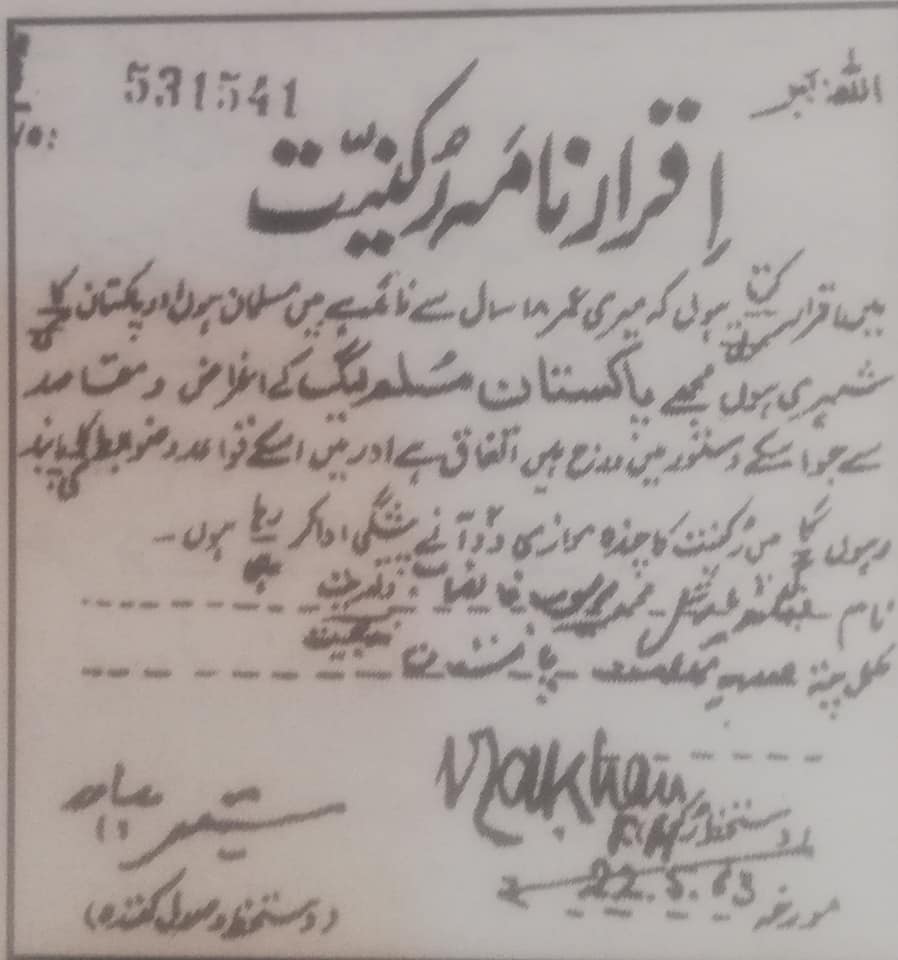 531541
اللہ اکبر
اِقرار نامہ رُکنیّت
میں اقرار کرتا / کرتی ہوں کہ میری عمر ۱۸ سال سے زائد ہے میں مسلمان ہوں اور پاکستان کا / کی
شہری ہوں مجھے پاکستان مُسلم لیگ کے اغراض و مقاصد
سے جو اسکے دستور میں درج ہیں اتفاق ہے اور میں اسکے قواعد و ضوابط کا / کی پابند
رہوں گا / گی میں رُکنیت کا چندہ موازی دو آنے پیشگی ادا کر رہا / رہی ہوں۔
نام فیلڈ مارشل محمد ایوب خان ولدیت / زوجیت
مکمل پتہ
Makhan
F.M
دستخط رکن
مورخہ 22.5.63
(دستخط وصول کنندہ)